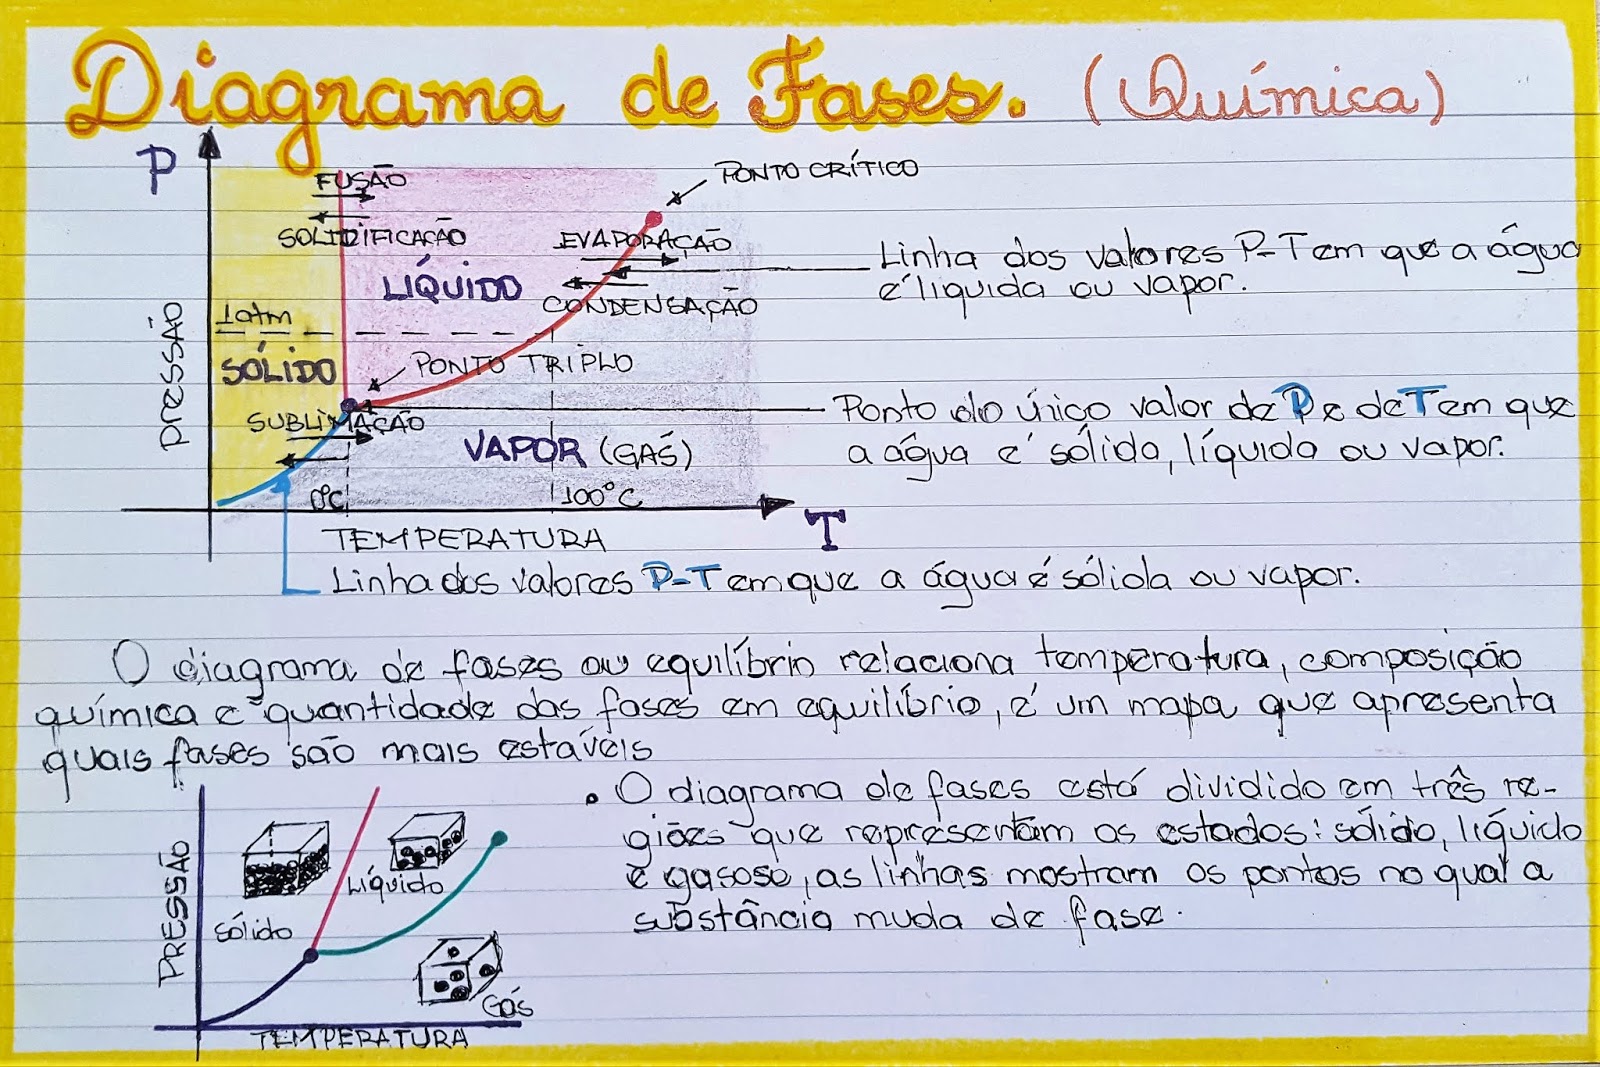 Diagrama de Fases. (Química)
P
PONTO CRÍTICO
FUSÃO
SOLIDIFICAÇÃO
EVAPORAÇÃO
LÍQUIDO
CONDENSAÇÃO
Linha dos valores P-T em que a água
é líquida ou vapor.
1atm
PRESSÃO
SÓLIDO
PONTO TRIPLO
SUBLIMAÇÃO
Ponto do único valor de P e de T em que
a água é sólida, líquida ou vapor.
VAPOR (GÁS)
0°C
100°C
TEMPERATURA
T
Linha dos valores P-T em que a água é sólida ou vapor.
O diagrama de fases ou equilíbrio relaciona temperatura, composição
química e quantidade das fases em equilíbrio, é um mapa que apresenta
quais fases são mais estavéis
• O diagrama de fases está dividido em três re-
giões que representam os estados: sólido, líquido
e gasoso, as linhas mostram os pontos no qual a
substância muda de fase.
PRESSÃO
Líquido
Sólido
Gás
TEMPERATURA